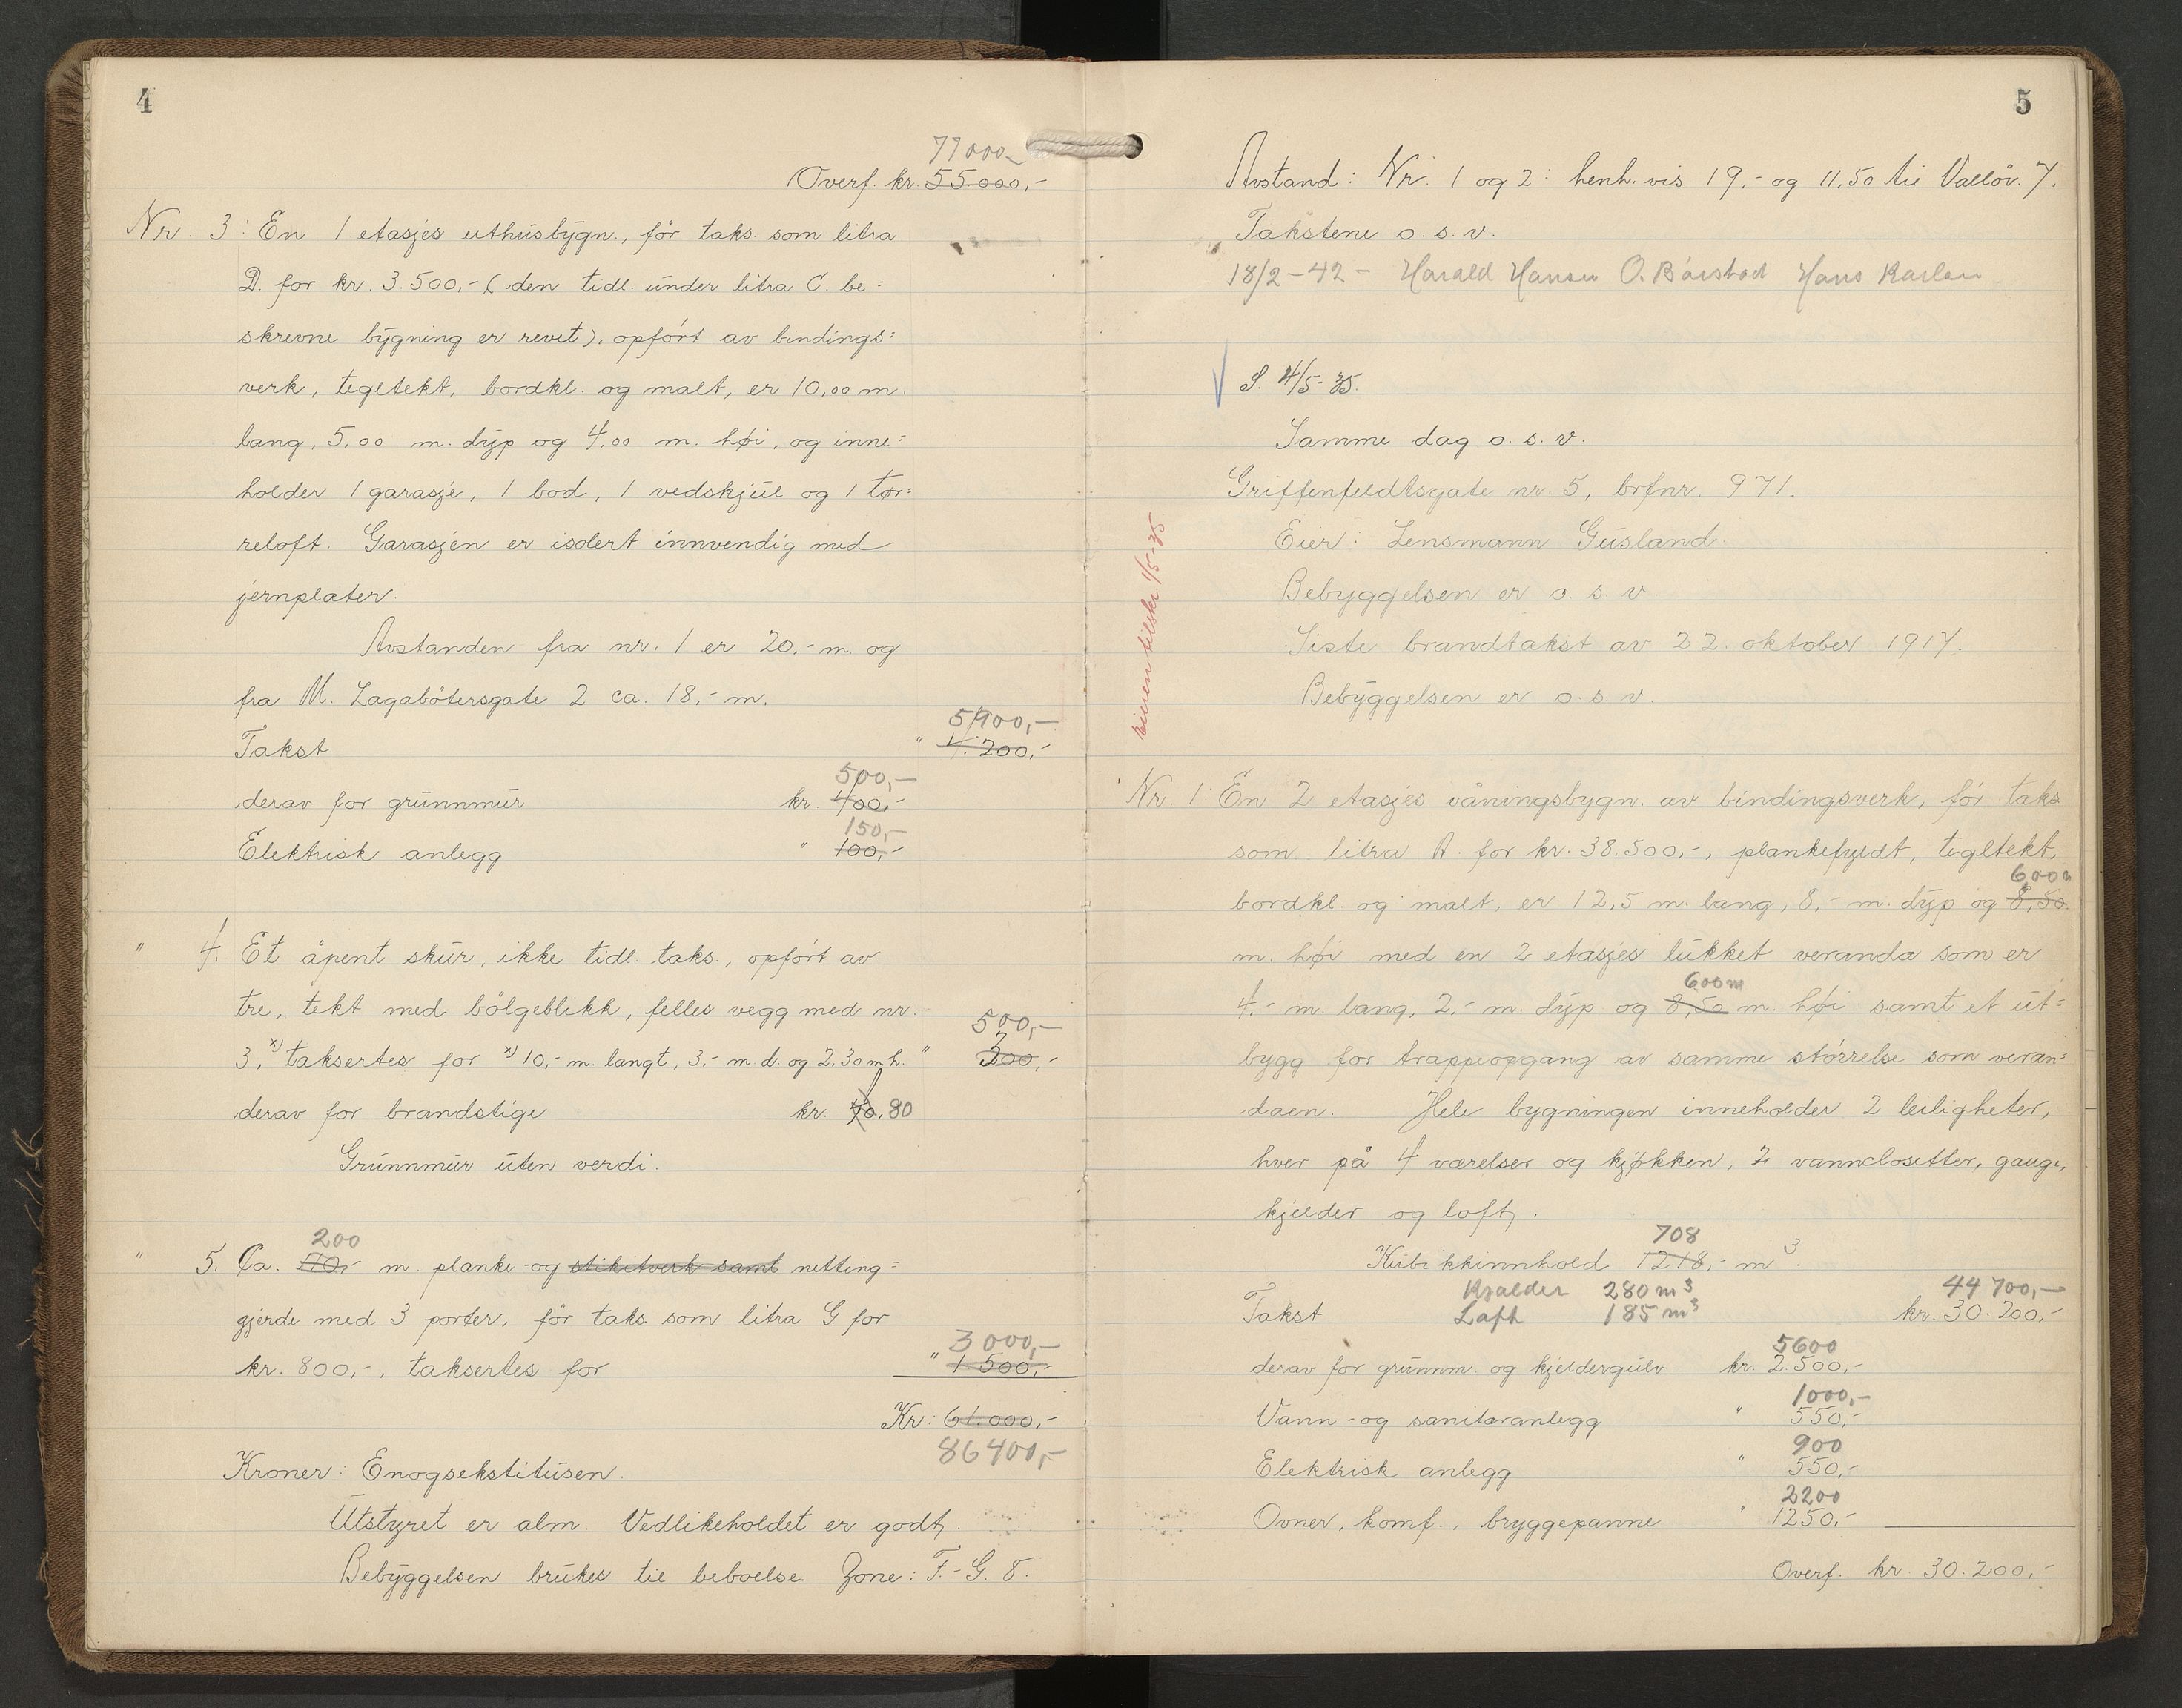 4
77000,-
Overf. kr. 55000,-
Nr. 3: En 1 etasjes uthusbygn., før taks. som litra
D. for kr. 3.500,- (den tidl. under litra C. be=
skrevne bygning er revet), opført av bindings=
verk, tegltekt, bordkl. og malt, er 10,00 m.
lang, 5,00 m. dyp og 4,00 m. høi, og inne=
holder 1 garasje, 1 bod, 1 vedskjul og 1 tør=
reloft. Garasjen er isolert innvendig med
jernplater.
Avstanden fra nr. 1 er 20,- m. og
fra M. Lagabötersgate 2 ca. 18,- m.
5900,-
Takst " 4.200,-
500,-
derav for grunnmur kr. 400,-
150,-
Elektrisk anlegg " 100,-
" 4. Et åpent skur, ikke tidl. taks., opført av
tre, tekt med bölgeblikk, felles vegg med nr.
500,-
3, x) taksertes for x) 10,- m. langt, 3,- m d. og 2,30 m h. " 300,-
derav for brandstige kr. 40, 80
Grunnmur uten verdi.
200
" 5. Ca. 110,- m. planke- og stikitverk samt netting=
gjerde med 3 porter, før taks. som litra G for
3000,-
kr. 800,-, taksertes for " 1500,-
Kr: 61.000,-
86400,-
Kroner: Enogsekstitusen.
Utstyret er alm. Vedlikeholdet er godt,
Bebyggelsen brukes til beboelse. Zone: F.-G. 8.
5
Avstand: Nr. 1 og 2: henh. vis 19,- og 11,50 til Vallöv. 7.
Takstene o. s. v.
18/2-42 - Harald Hansen O. Bårstad Hans Karlsen
S. 4/5-35.
Samme dag o. s. v.
Griffenfeldtsgate nr. 5, brfnr. 971.
Eier: Lensmann Gusland.
Bebyggelsen er o. s. v.
Siste brandtakst av 22. oktober 1917.
Bebyggelsen er o. s. v.
Eieren tilskr. 1/5-35
Nr. 1: En 2 etasjes våningsbygn. av bindingsverk, før taks
som litra A. for kr. 38.500,-, plankefyldt, tegltekt,
6,00 m
bordkl. og malt, er 12,5 m. lang, 8,- m. dyp og 8,50
m. høi med en 2 etasjes lukket veranda som er
600 m
4,- m. lang, 2,- m. dyp og 8,50 m. høi samt et ut=
bygg for trappeopgang av samme størrelse som veran=
daen. Hele bygningen inneholder 2 leiligheter,
hver på 4 værelser og kjøkken, 2 vannclosetter, gange,
kjelder og loft,.
708
Kubikkinnhold 1218,- m³.
Kjælder 280 m³ 44700,-
Takst Loft 185 m³ kr. 30.200,-
5600
derav for grunnm. og kjeldergulv kr. 2.500,-
1000,-
Vann- og sanitæranlegg " 550,-
900
Elektrisk anlegg " 550,-
2200
Ovner, komf., bryggepanne " 1250,-
Overf. kr. 30.200,-